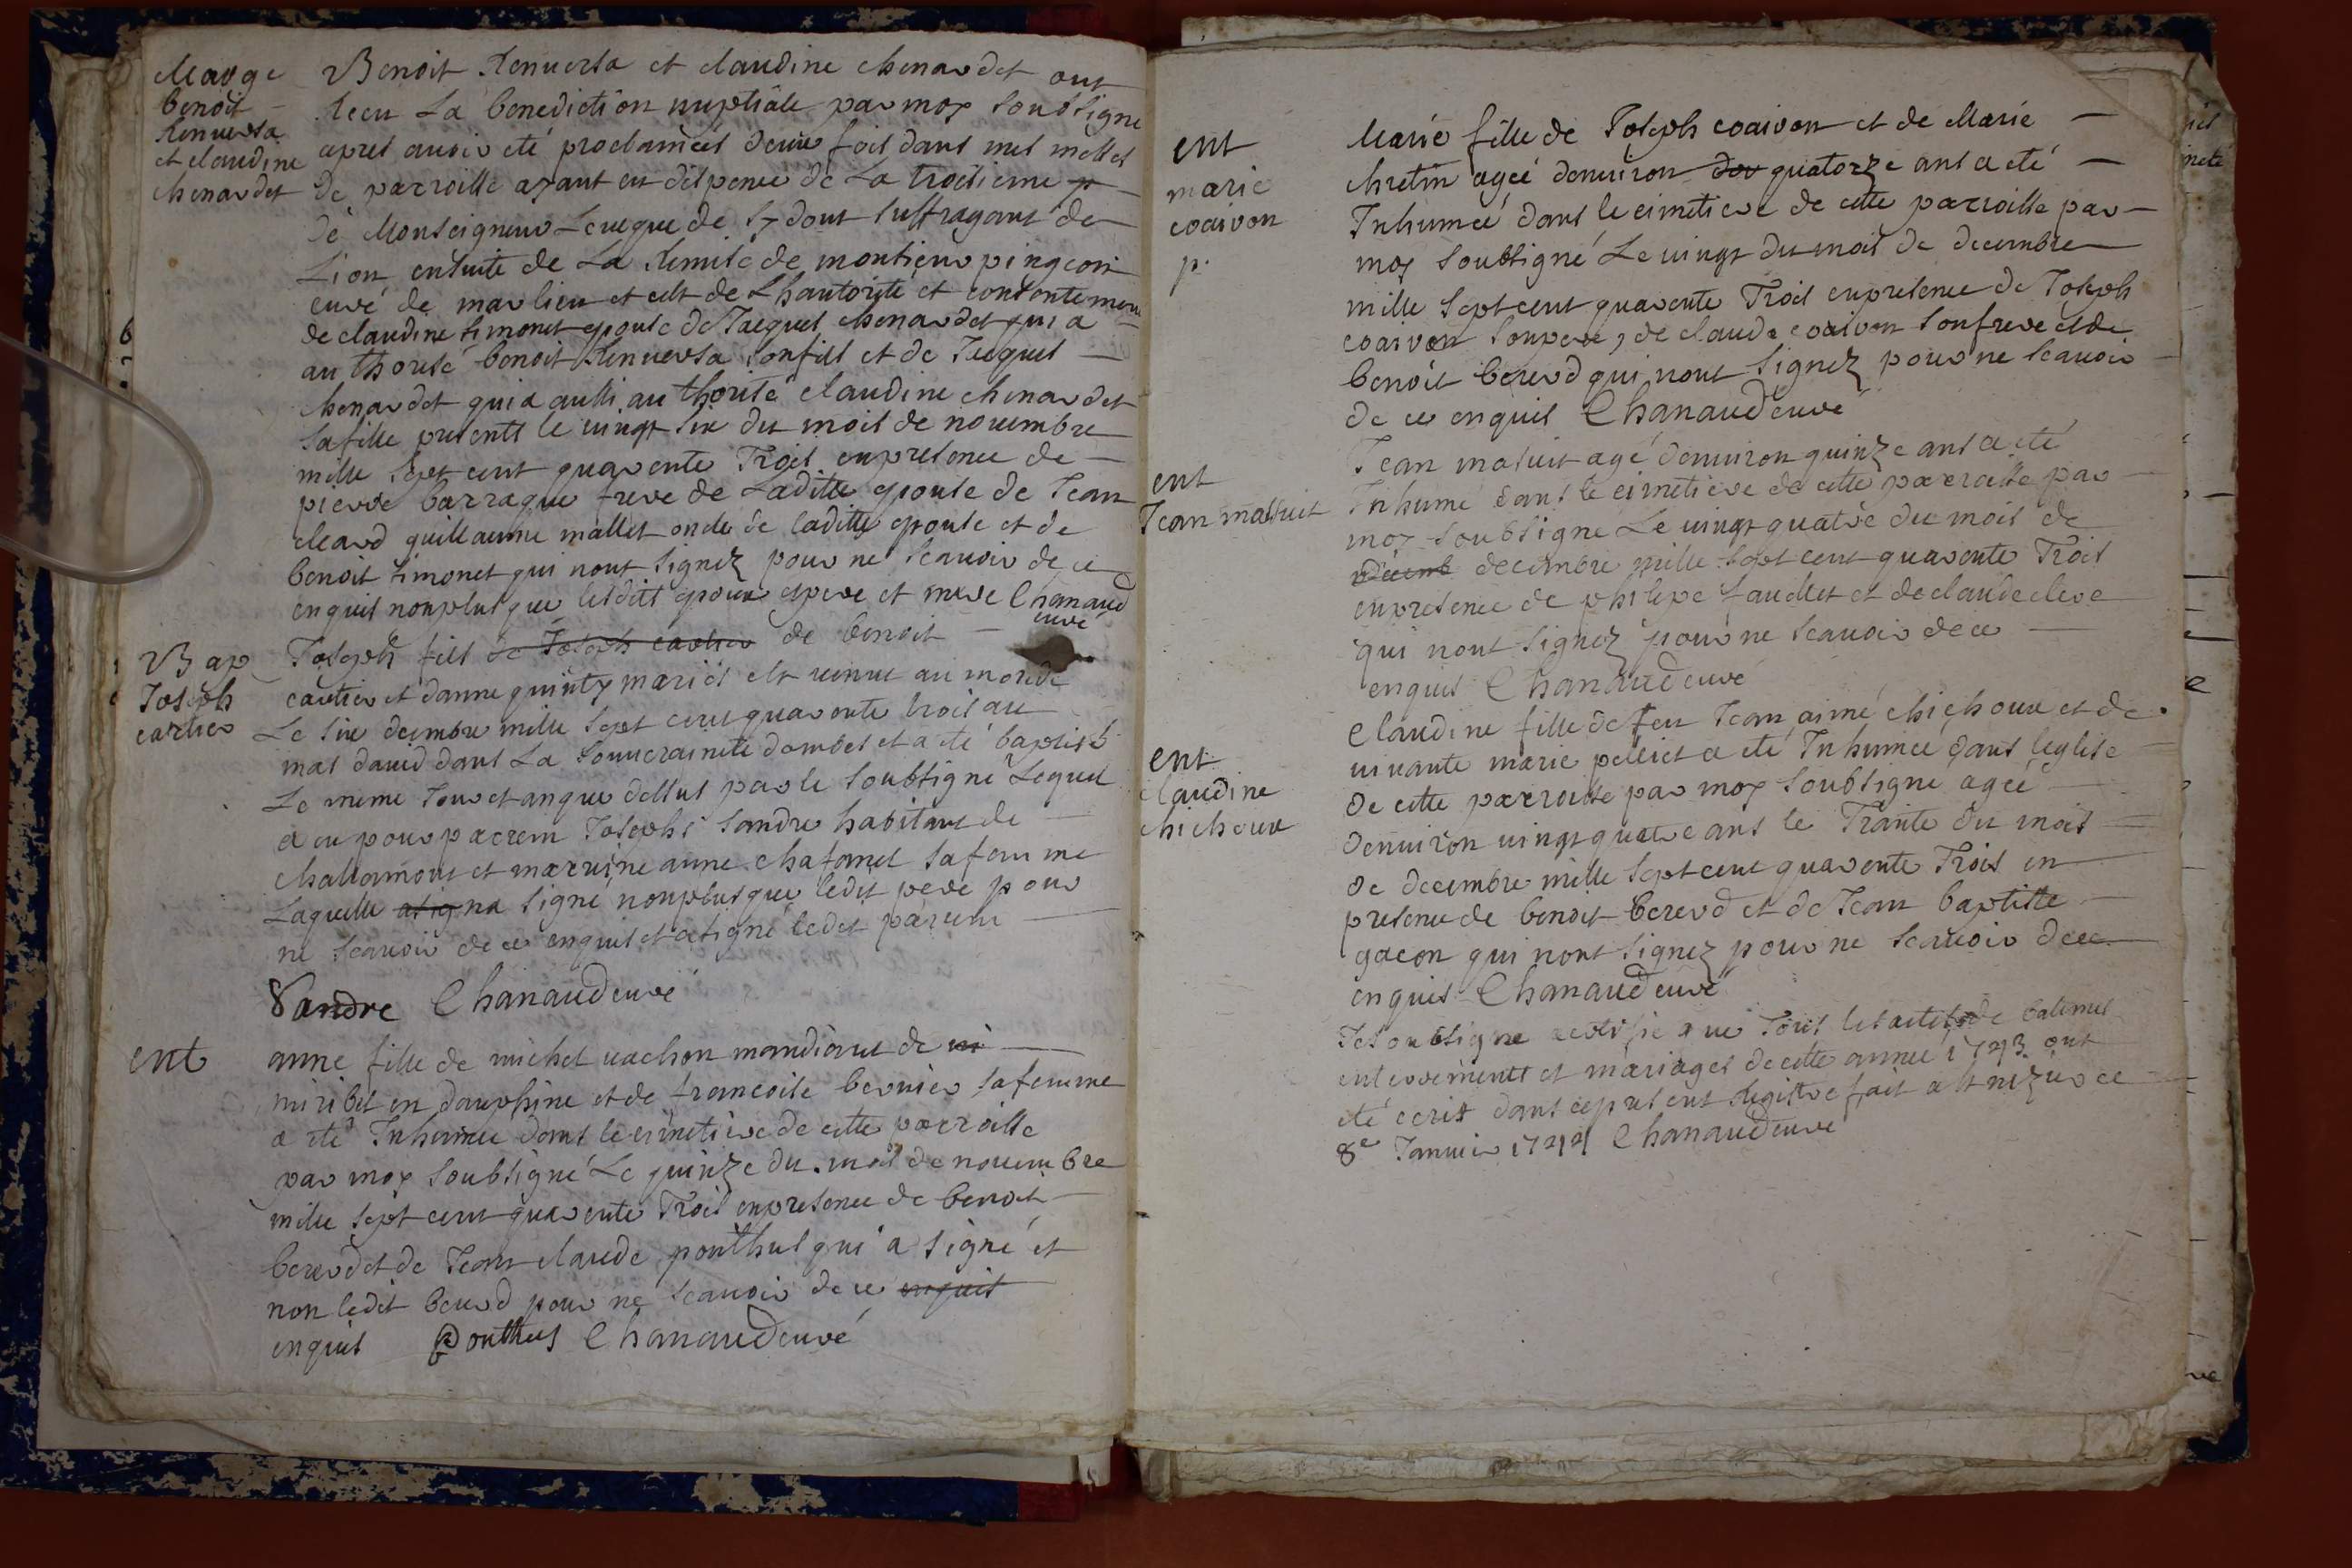 Mavge
benoit
Renversa
et claudine
chenardet
Benoit Renversa et claudine chenardet ont
Receu La benediction nuptiale par moy soubsigne
apres avoir eté proclameés deux fois dans mes messes
de parroisse ayant eu dispence de La troisieme
de Monseigneur Leveque de sydout suffragant de
Lion ensuite de La Remise de monsieur pingeon
curé de marlieu et cest de Lhautorite et consentement
de claudine simonet epouse de Jacques chenardet qui a
authorisé benoit Renversa sonfils et de Jacques
chenardet qui a aussi authorisé claudine chenardet
safille presents le vingt six du mois de novembre
mille sept cent quarente Trois enpresence de
pierre barraque frere de Laditte epouse de Jean
cleard guillaume mallet oncle de laditte epouse et de
benoit simonet qui nont signez pour ne scavoir de ce
enquis nonplusque lesdits epoux epere et mere Chanaud
curé
Bap
Joseph
cartier
Joseph fils de Joseph cartier de benoit
cartier et danne quinty mariés est venut au monde
Le six decmbre mille sept cent quarente trois au
mas david dans La souverainite dombes et a eté baptisé
Le meme Jour et anque dessus par le soubsigné Lequel
a eu pour parrein Josephs sandre habitant de
challamont et marrine anne chafanel safemme
Laquelle asigna signé nonplusque ledit pere pour
ne scavoir de ce enquis et asigné ledit parein
Sandre Chanaud curé
ent
anne fille de michel vachon mandiant de mi
miribel en dauphine et de francoise bernier safemme
a eté Inhumee dans le cimetiere de cette parroisse
par moy soubsigné Le quinze du mois de novembre
mille sept cent quarente Trois enpresence de benoit
bererd et de Jean claude ponthus qui a signé et
non ledit bererd pour ne scavoir de ce enquis
enquis Ponthus Chanaud curé
ent
marie
coaivon
p.
Marie fille de Joseph coaivon et de Marie
chretin ageé denviron dou quatorze ans a eté
Inhumeé dans le cimetiere de cette parroisse par
moy soubsigné Le vingt du mois de decembre
mille sept cent quarente Trois enpresence de Joseph
coaivon sonpere, de claude coaivon sonfrere et de
benoit bererd qui nont signez pour ne scavoir
de ce enquis Chanaud curé
ent
Jean masuit
Jean masuit agé denviron quinze ans a eté
Inhumé dans le cimetiere de cette parroisse par
moy soubsigné Le vingt quatre du mois de
decemb decembre mille sept cent quarente Trois
enpresence de philipe faudlet et de claude clere
qui nont signez pour ne scavoir de ce
enquis Chanaud curé
ent
claudine
chichoux
Claudine fille de feu Jean aimé chichoux et de
vivante marie pelliet a eté Inhumee dans leglise
de cette parroisse par moy soubsigné ageé
denviron vingt quatre ans le Trante du mois
de decembre mille sept cent quarente Trois en
presence de benoit bererd et de Jean baptiste
gacon qui nont signez pour ne scavoir de ce
enquis Chanaud curé
Jesoubsigne certifie que Tous les actes de batemes
enterrements et mariages de cette annee 1743 ont
eté ecrit dans ce present Registre fait a st nizier ce
8e Janvier 1744 Chanaud curé